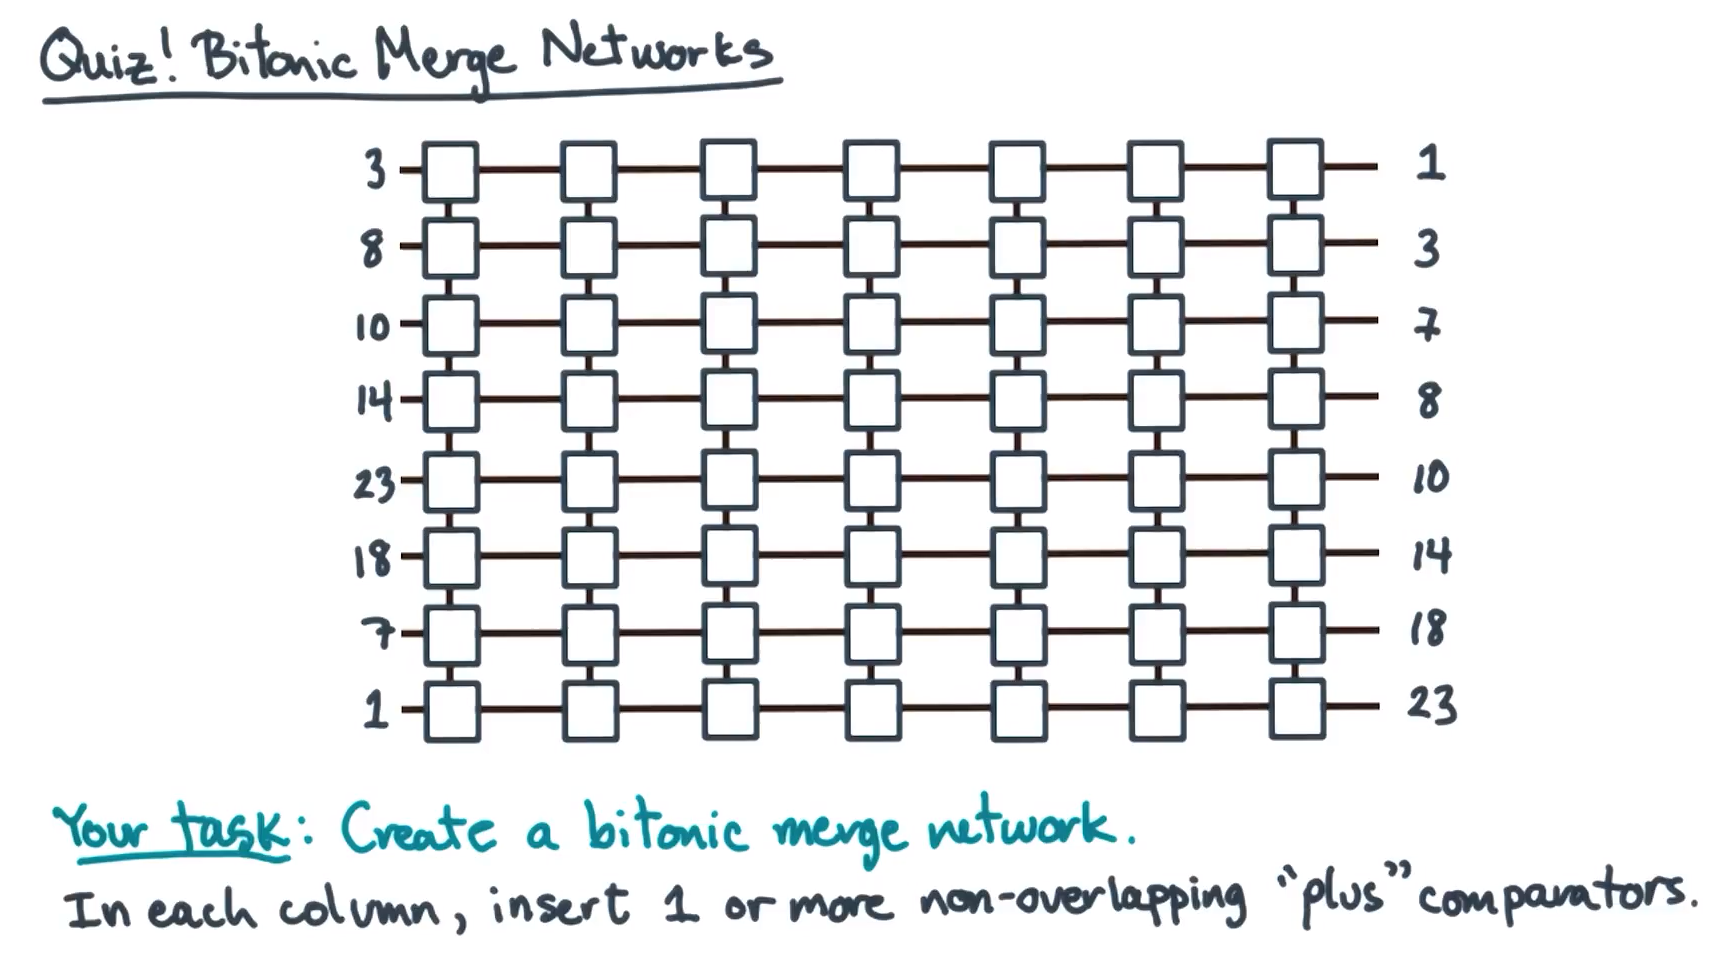 Quiz! Bitonic Merge Networks
3 1
8 3
10 7
14 8
23 10
18 14
7 18
1 23
Your task: Create a bitonic merge network.
In each column, insert 1 or more non-overlapping "plus" comparators.